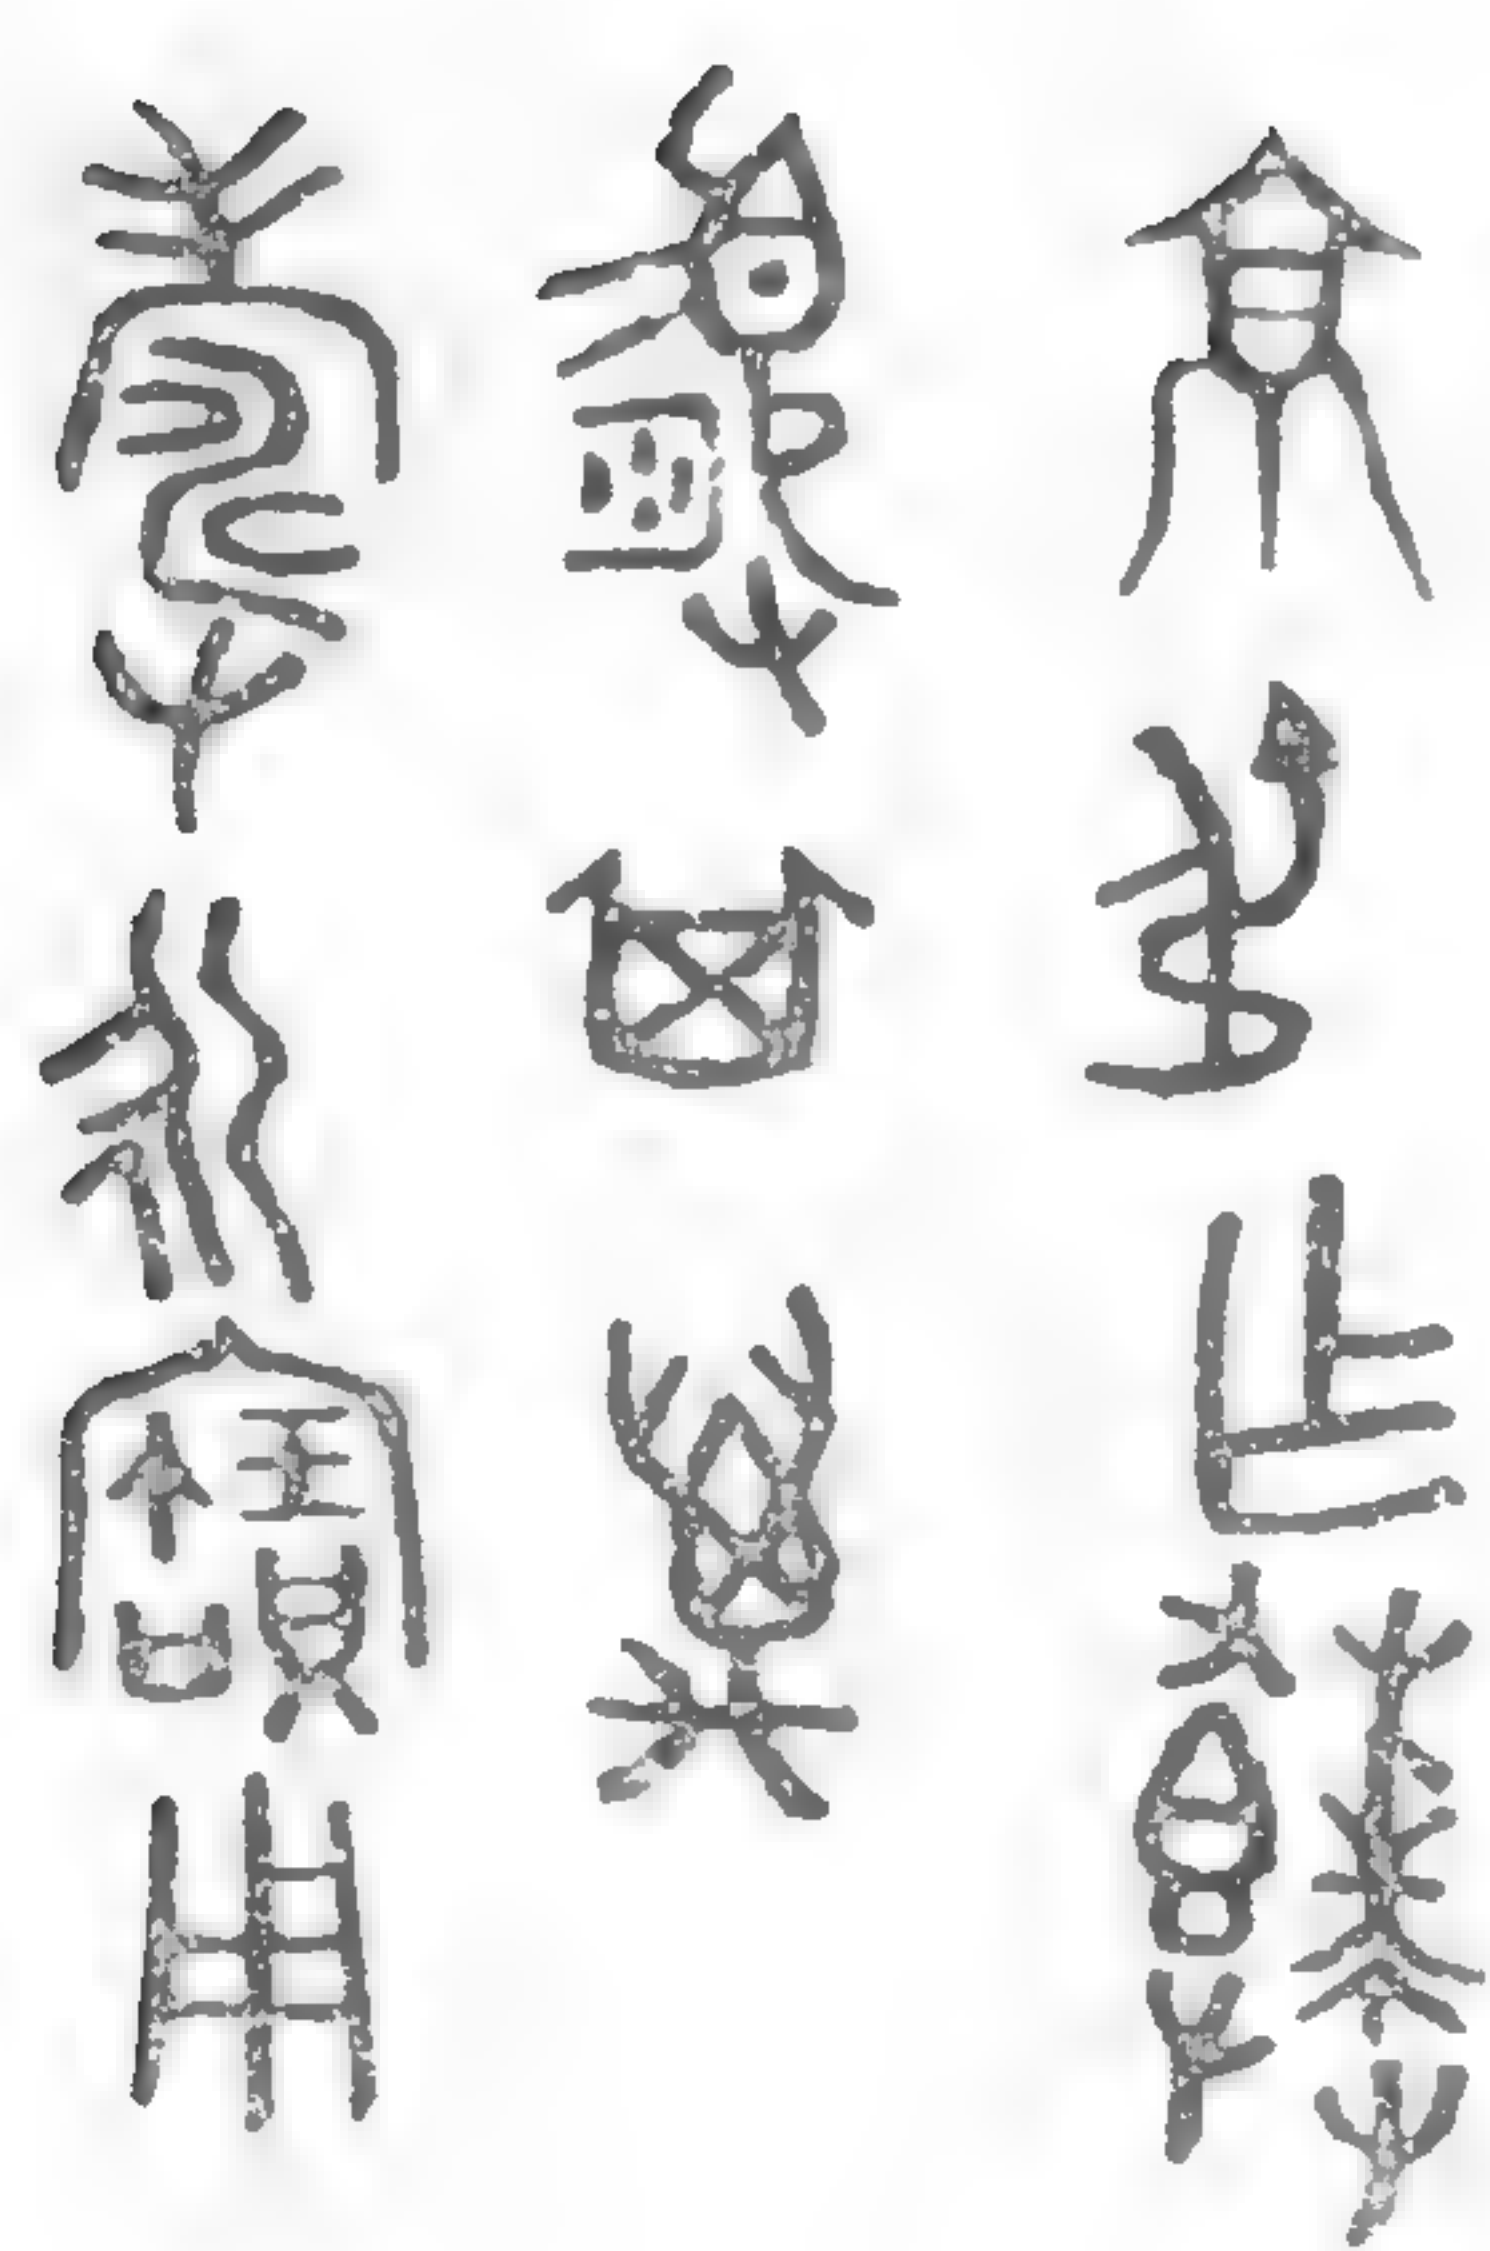 京叔乍饙
盨其萬
壽永寶用